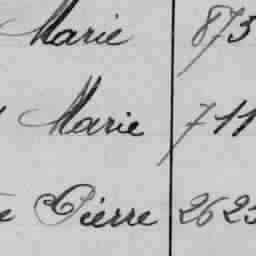 Marie 873
Marie 711
Pierre 2623